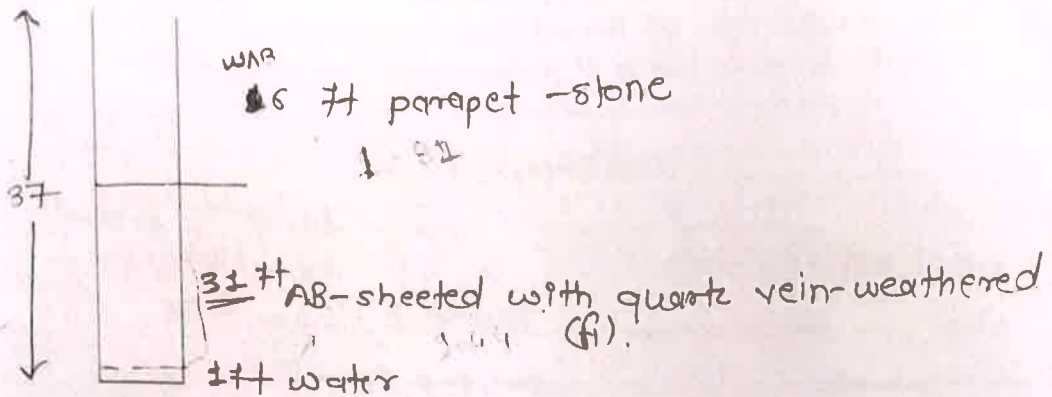 WAB
6 ft parapet - stone
37
31 ft AB-sheeted with quartz vein-weathered
(fi).
1 ft water